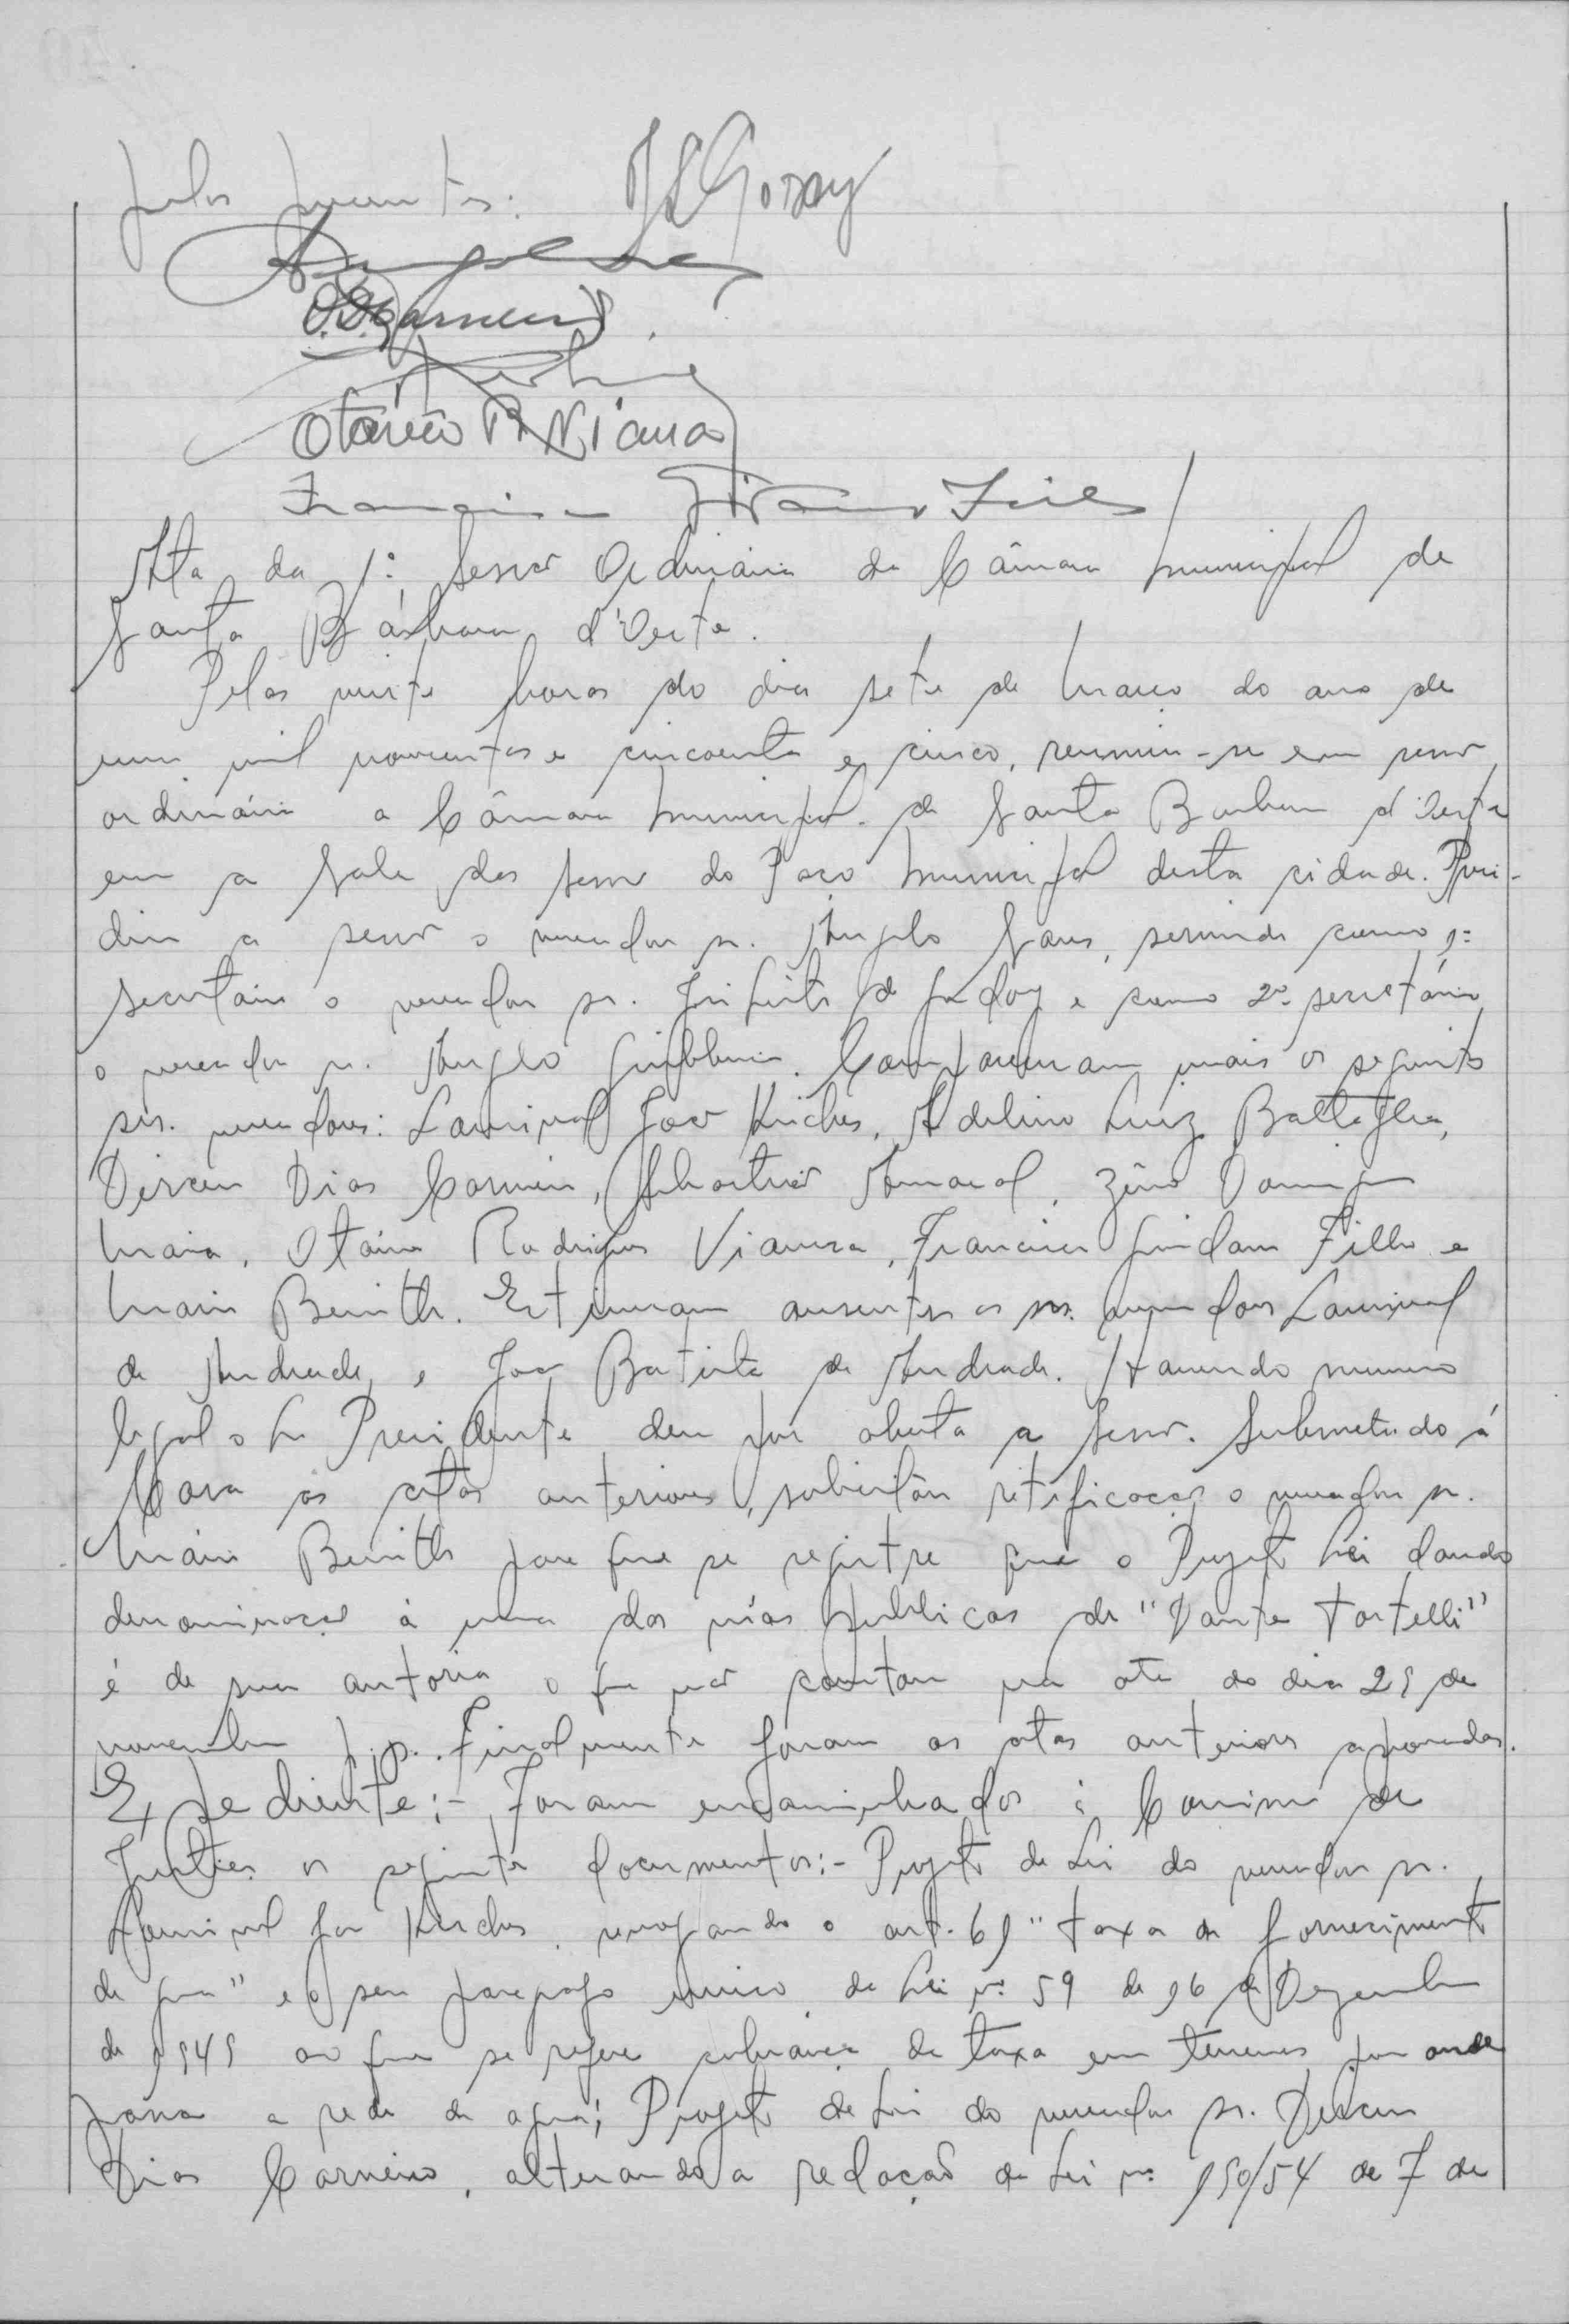 pelos presentes.
Otávio R. Viana
Francisco Filho
Ata da 1ª Sessão Ordinária da Câmara Municipal de
Santa Bárbara d'Oeste.
Pelas vinte horas do dia sete de Março do ano de
um mil novecentos e cincoenta e cinco, reuniu-se em sessão
ordinária a Câmara Municipal de Santa Barbara d'Oeste
em a Sala das Sessões do Paço Municipal desta cidade. Presi-
diu a sessão o vereador sr. Angelo Sans, servindo como 1º
secretário o vereador sr. de Godoy e como 2º secretário
o vereador sr. Angelo Giubbina. Compareceram mais os seguintes
srs. vereadores: Laurival João Kirches, Adelino Luiz Battaglia,
Dirceu Dias Carneiro, Sebastião Amaral, Zeno Domingues
Maia, Otávio Rodrigues Vianna, Francisco Filho e
Mario Benith. Estiveram ausentes os srs. vereadores Laurival
de Andrade e João Batista de Andrade. Havendo numero
legal o Sr Presidente deu por aberta a Sessão. Submetendo á
Casa as atas anteriores, solicitou retificação o vereador sr.
Mário Benith para que se registre que o Projeto Lei dando
denominação á uma das vias publicas de "Dante Tortelli"
é de sua autoria o que não constou na ata do dia 29 de
novembro p.p. Finalmente foram as atas anteriores aprovadas.
Expediente:- Foram encaminhados á Comissão de
Justiça os seguintes documentos:- Projeto de Lei do vereador sr.
Laurival João Kirches, revogando o art. 69 "taxa de fornecimento
de água" e o seu paragrafo unico da Lei nº 59 de 16 de Dezembro
de 1949 ao que se refere cobrança de taxa em terrenos por onde
passa a rede de agua; Projeto de Lei do vereador sr. Dirceu
Dias Carneiro, alterando a redação da Lei nº 190/54 de 7 de